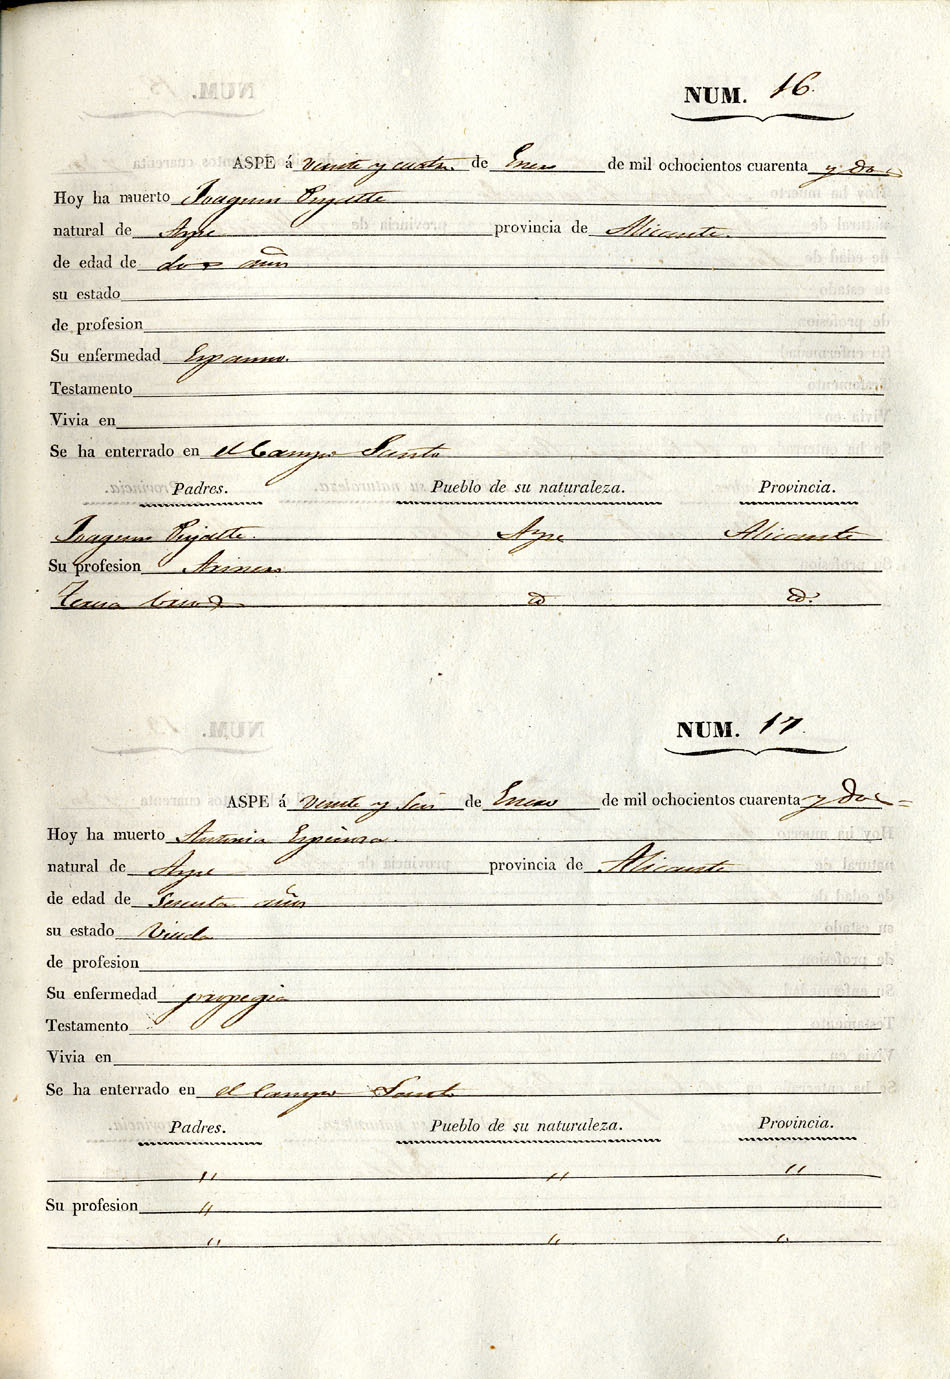 NUM. 16.
ASPE á veinte y cuatro de Enero de mil ochocientos cuarenta y dos
Hoy ha muerto Joaquin Pujalte
natural de Aspe provincia de Alicante.
de edad de dos años
su estado
de profesion
Su enfermedad Espasmo.
Testamento
Vivia en
Se ha enterrado en el Campo Santo
Padres. Pueblo de su naturaleza. Provincia.
Joaquin Pujalte. Aspe Alicante
Su profesion Arriero
Teresa id id.
NUM. 17.
ASPE á veinte y seis de Enero de mil ochocientos cuarenta y dos=
Hoy ha muerto Antonia Espinosa.
natural de Aspe provincia de Alicante
de edad de años
su estado Viuda
de profesion
Su enfermedad
Testamento
Vivia en
Se ha enterrado en el Campo Santo
Padres. Pueblo de su naturaleza. Provincia.
" " "
Su profesion "
" " "